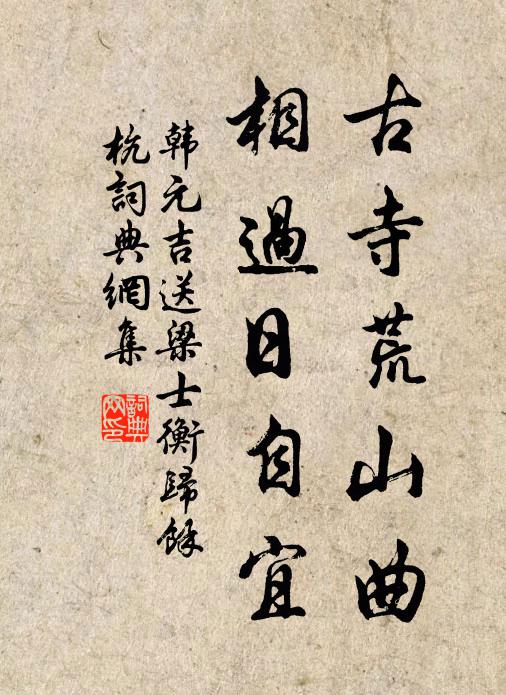 古寺荒山曲
相過日自宜
韩元吉送梁士衡歸餘
杭詞典網集
詞典
网印